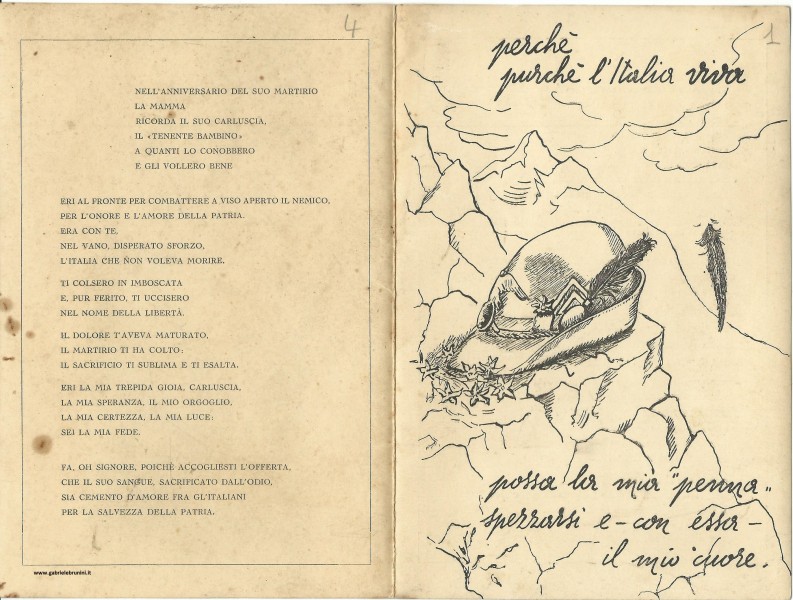 4
NELL'ANNIVERSARIO DEL SUO MARTIRIO
LA MAMMA
RICORDA IL SUO CARLUSCIA,
IL «TENENTE BAMBINO»
A QUANTI LO CONOBBERO
E GLI VOLLERO BENE
ERI AL FRONTE PER COMBATTERE A VISO APERTO IL NEMICO,
PER L'ONORE E L'AMORE DELLA PATRIA.
ERA CON TE,
NEL VANO, DISPERATO SFORZO,
L'ITALIA CHE NON VOLEVA MORIRE.
TI COLSERO IN IMBOSCATA
E, PUR FERITO, TI UCCISERO
NEL NOME DELLA LIBERTÀ.
IL DOLORE T'AVEVA MATURATO,
IL MARTIRIO TI HA COLTO:
IL SACRIFICIO TI SUBLIMA E TI ESALTA.
ERI LA MIA TREPIDA GIOIA, CARLUSCIA,
LA MIA SPERANZA, IL MIO ORGOGLIO,
LA MIA CERTEZZA, LA MIA LUCE:
SEI LA MIA FEDE.
FA, OH SIGNORE, POICHÈ ACCOGLIESTI L'OFFERTA,
CHE IL SUO SANGUE, SACRIFICATO DALL'ODIO,
SIA CEMENTO D'AMORE FRA GL'ITALIANI
PER LA SALVEZZA DELLA PATRIA.
www.gabrielebrunini.it
1
perchè
purchè l'Italia viva
possa la mia "penna„
spezzarsi e - con essa -
il mio cuore.